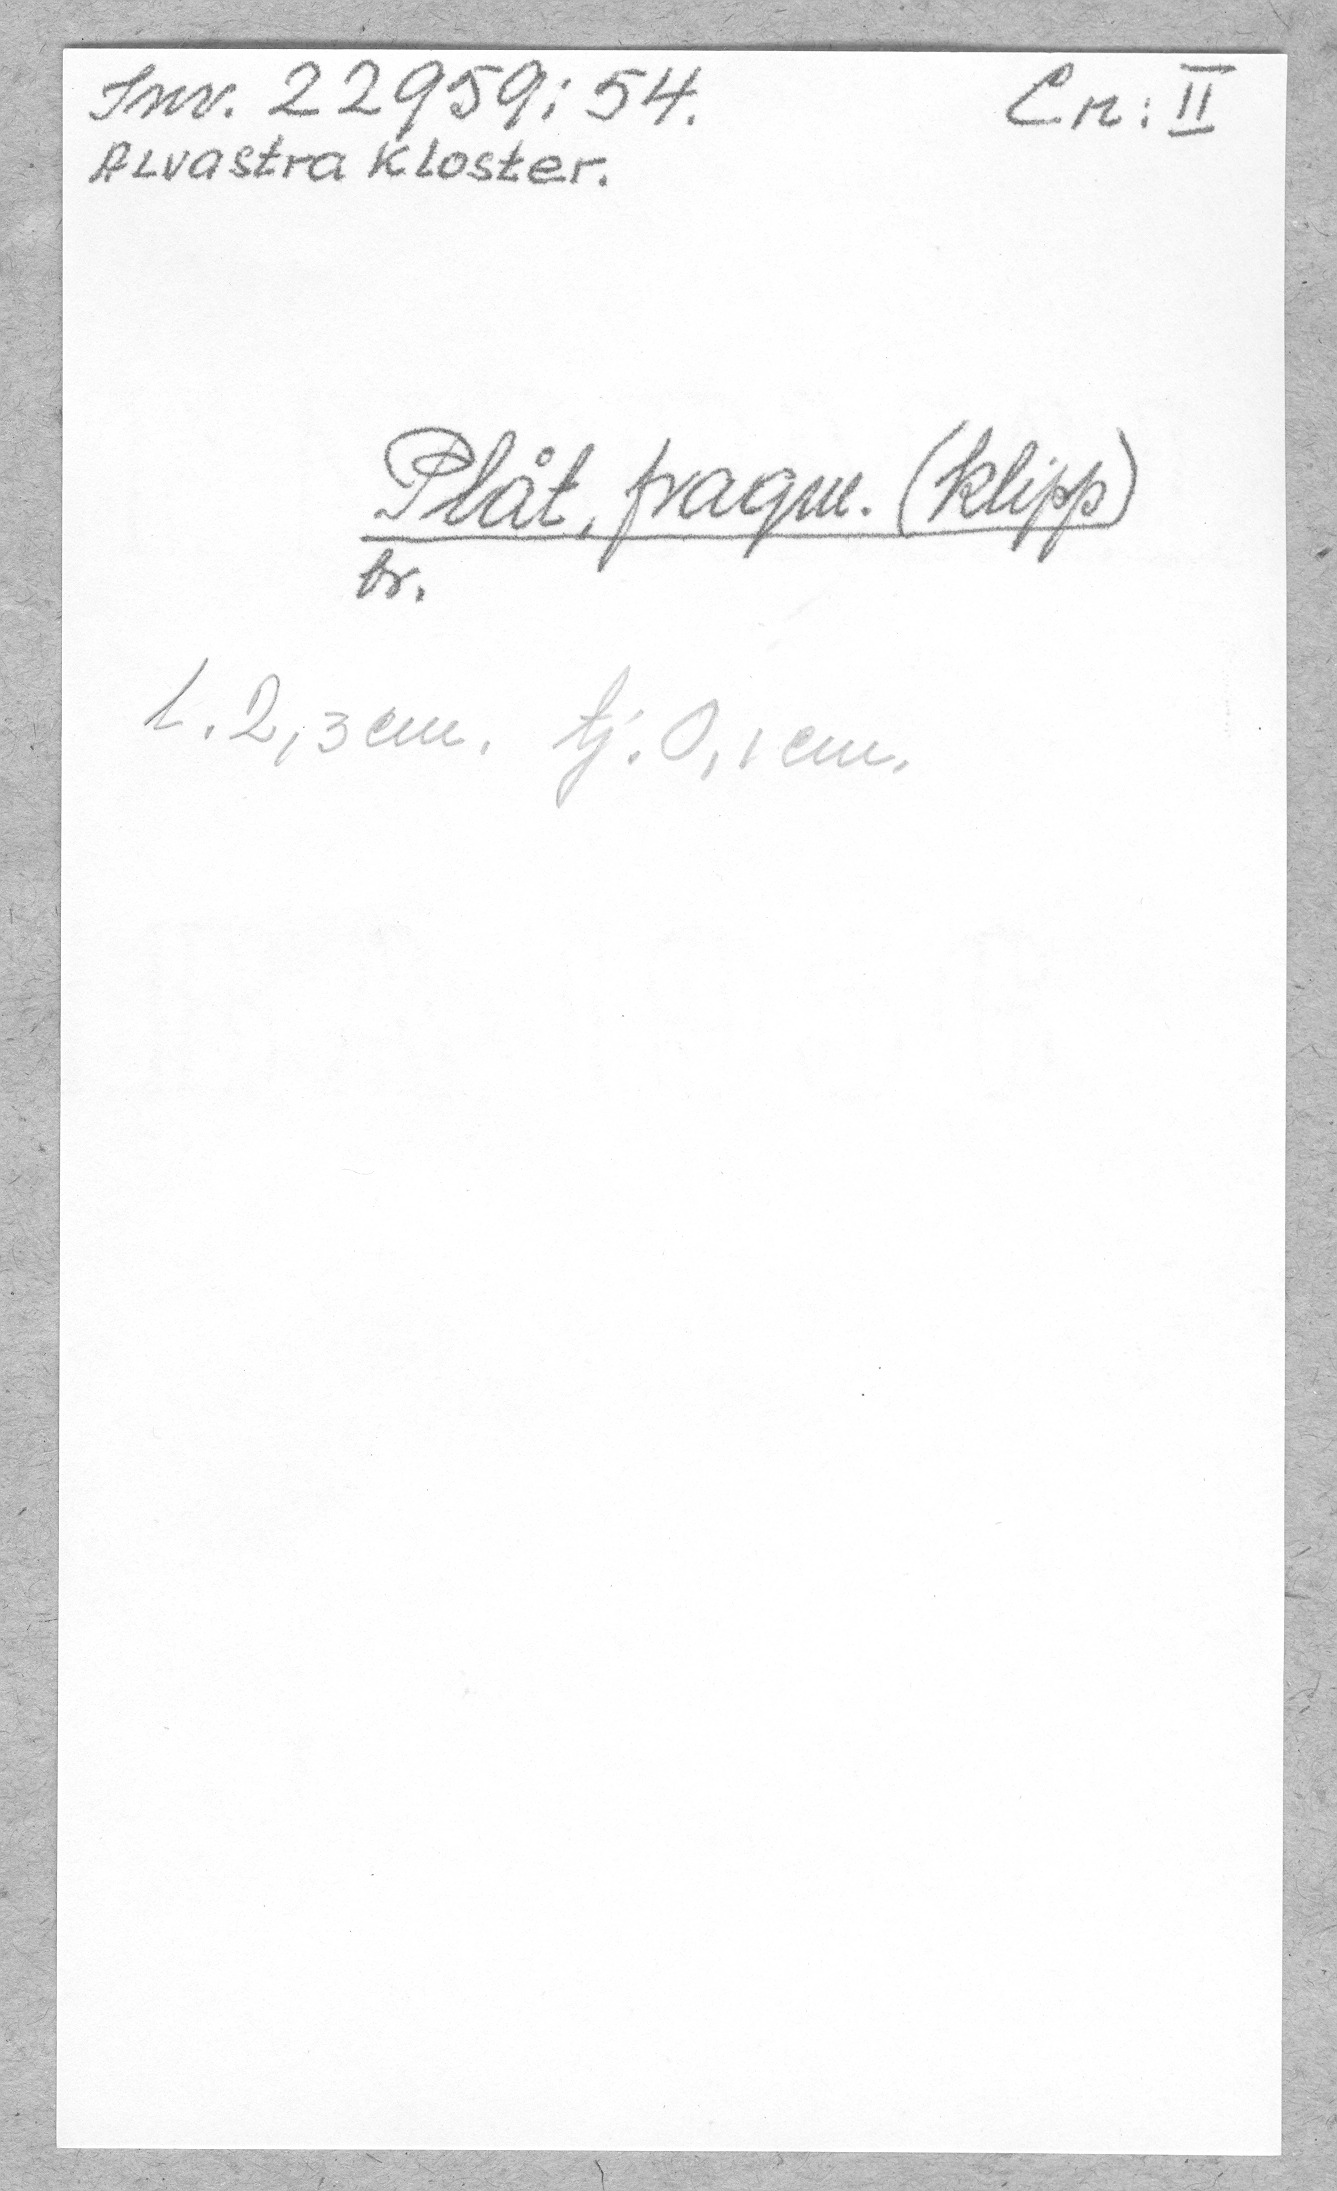 Inv. 22959:54. Cn: II
Alvastra Kloster.
Plåt, fragm. (klipp)
br.
l. 2,3 cm. tj. 0,1 cm.